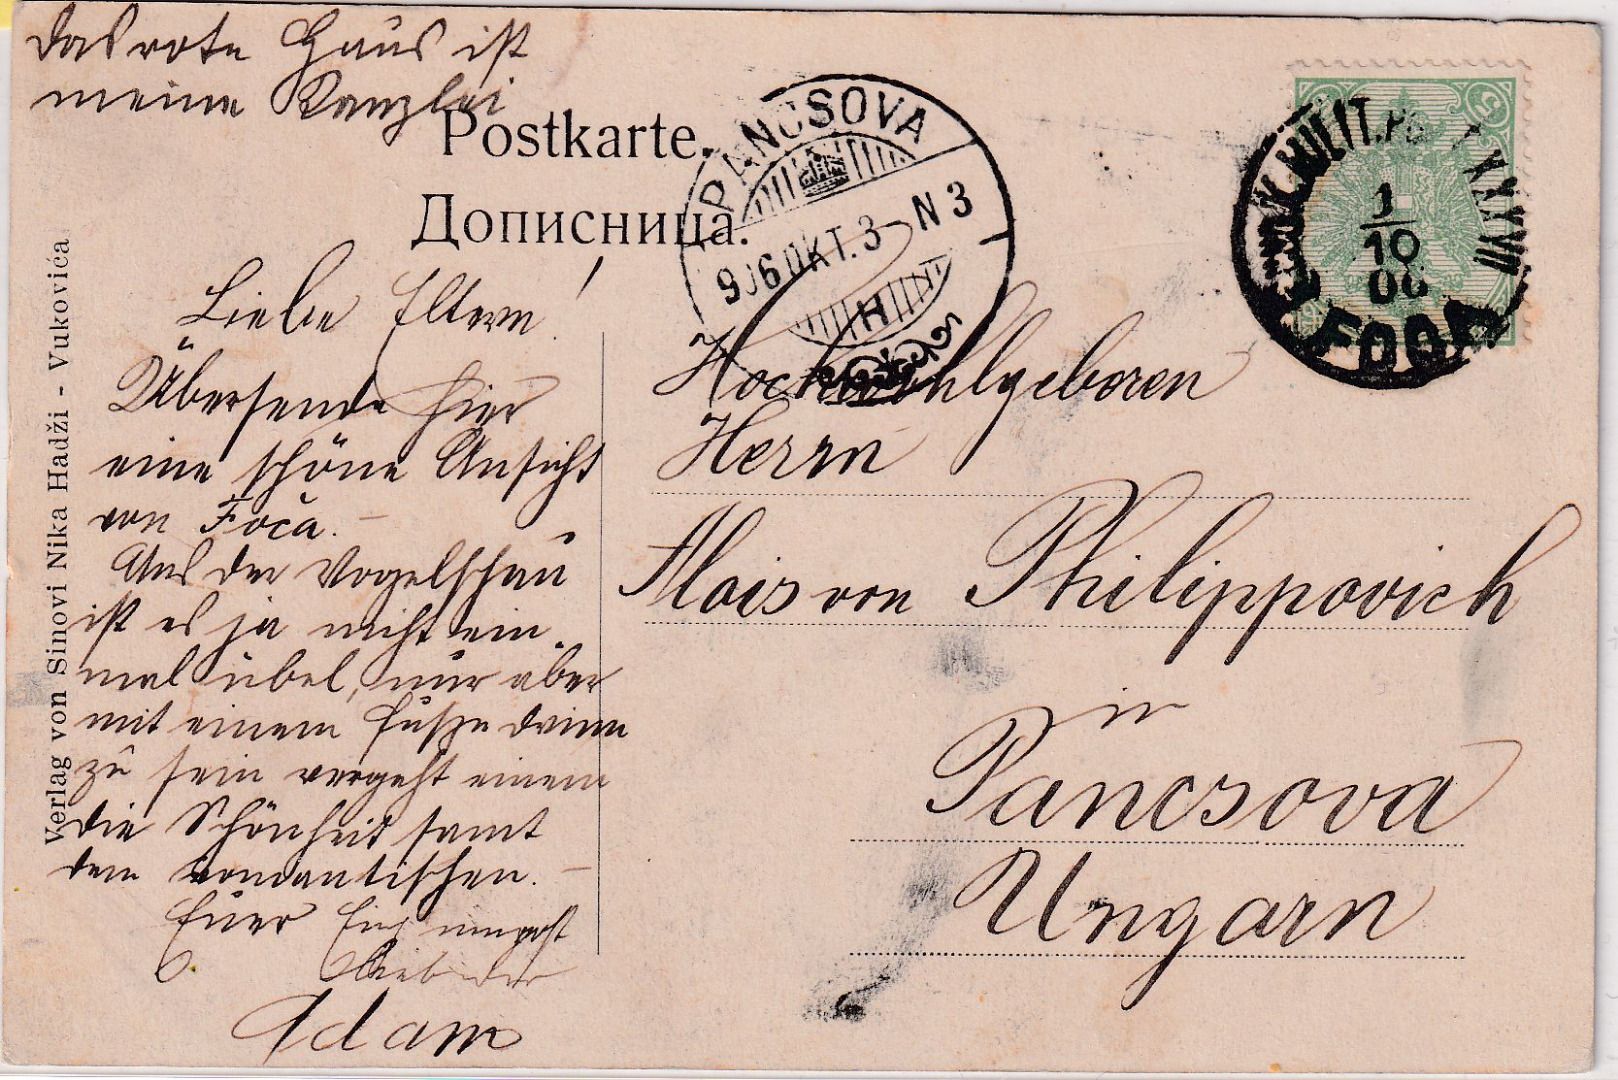 das rote Haus ist
meine Kanzlei
Postkarte.
Дописница.
PANCSOVA
906 OKT. 3 N 3
H
K.u.K. MILIT. POST XXXVII
1
10
06
FOČA
5
Liebe Eltern!
Übersende hier
eine schöne Ansicht
von Foča.
Aus der Vogelschau
ist es ja nicht ein
mal übel, nur aber
mit einem Fuße drinn
zu sein vergeht einem
die Schönheit samt
dem romantischen.
Euer Euch
liebender
Adam
Hochwohlgeboren
Herrn
Alois von Philippovich
in
Pancsova
Ungarn
Verlag von Sinovi Nika Hadži - Vukovića